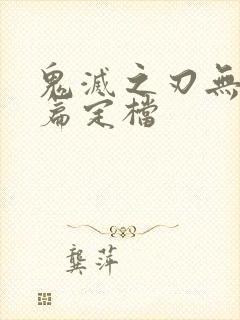 鬼滅之刃無
篇定檔
龔萍